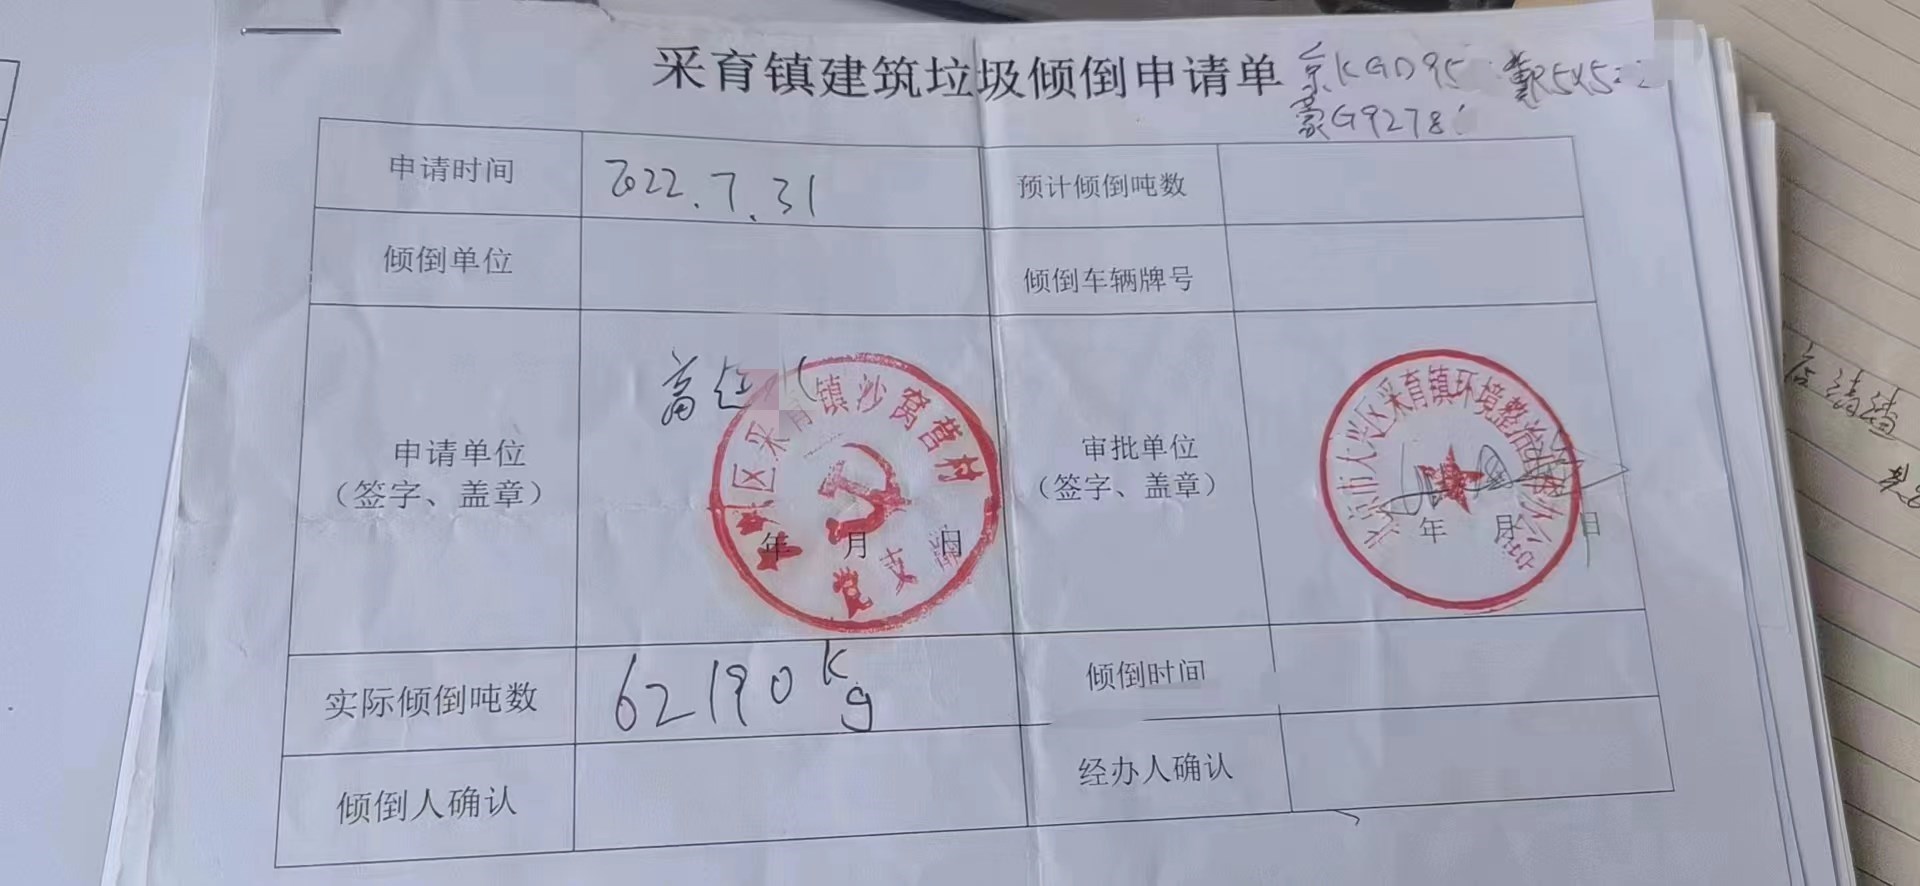 采育镇建筑垃圾倾倒申请单
京KGD95
冀R5X5
蒙G9278
申请时间
2022.7.31
预计倾倒吨数
倾倒单位
倾倒车辆牌号
申请单位
(签字、盖章)
区采育镇沙窝营村
党支部
年 月 日
审批单位
(签字、盖章)
北京市大兴区采育镇环境整治
办公室
年 月 日
实际倾倒吨数
62190kg
倾倒时间
倾倒人确认
经办人确认